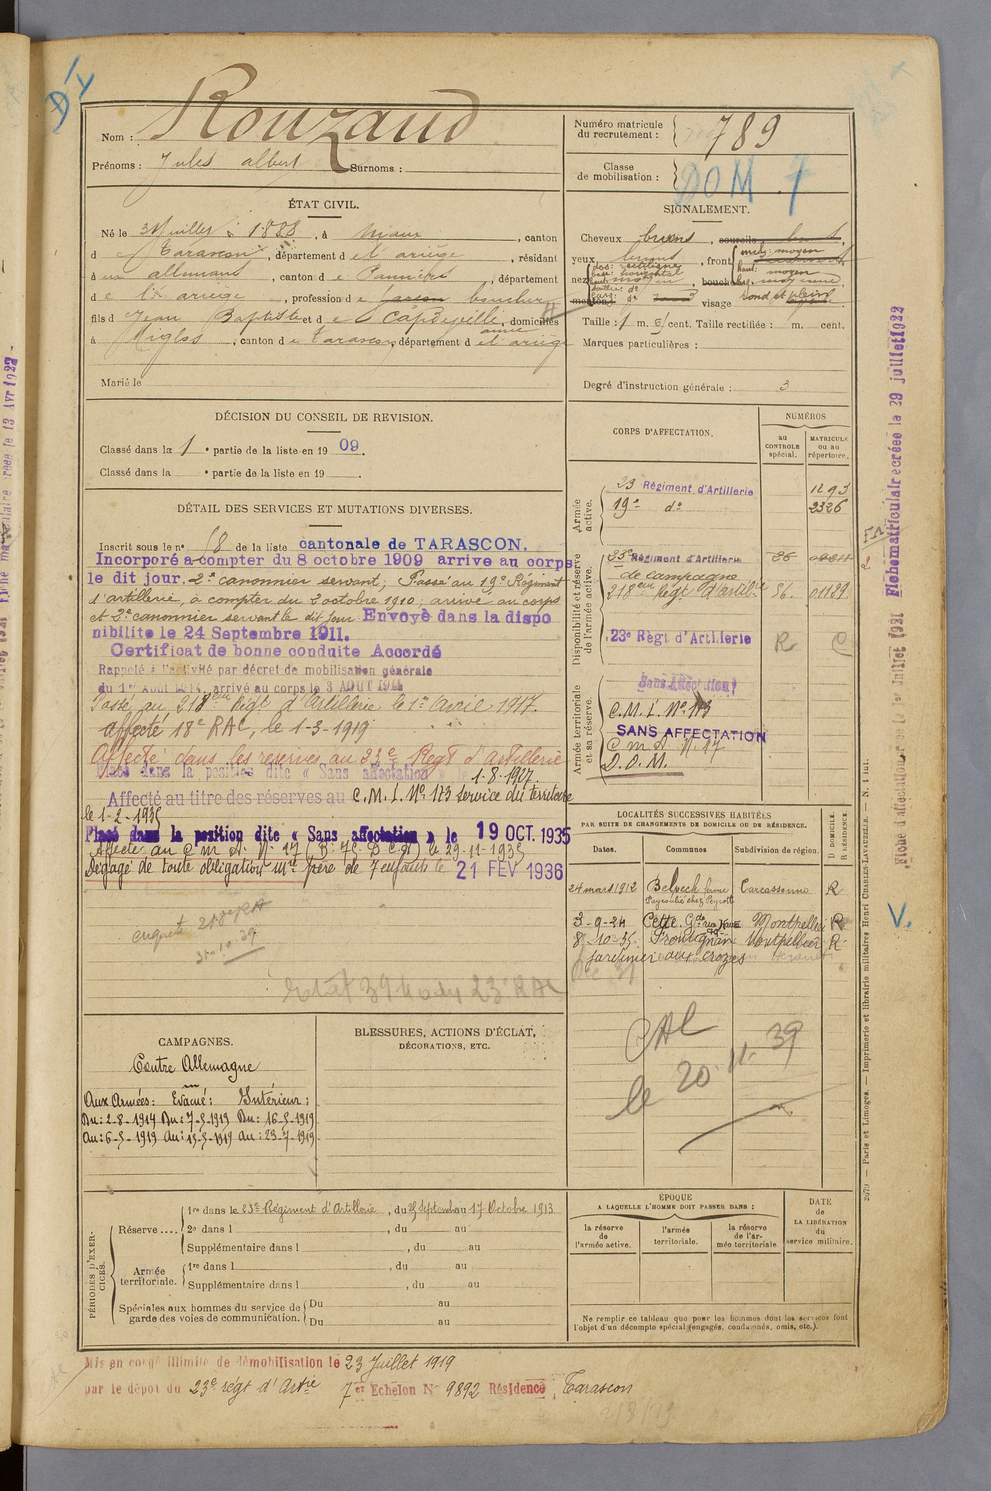 Nom : Rouzaud
Prénoms : Jules albert Surnoms :
Numéro matricule du recrutement : 789
Classe de mobilisation : DOM 7
ÉTAT CIVIL.
Né le Juillet 1888, à Niaux, canton
d e Tarascon, département d e l'ariège, résidant
à allemans, canton d e Pamiers, département
d e l'ariège, profession d e boucher
fils d e Jean Baptiste et d e Capdeville anne, domiciliés
à Miglos, canton d e Tarascon, département d e l'ariège
Marié le
SIGNALEMENT.
Cheveux bruns, sourcils
yeux bruns, front moyen
nez moyen, bouche moyenne
menton visage rond et plein
Taille : 1 m. cent. Taille rectifiée : m. cent.
Marques particulières :
Degré d'instruction générale : 3
DÉCISION DU CONSEIL DE REVISION.
Classé dans la 1e partie de la liste en 1909.
Classé dans la e partie de la liste en 19 .
DÉTAIL DES SERVICES ET MUTATIONS DIVERSES.
Inscrit sous le n° 18 de la liste cantonale de TARASCON.
Incorporé a compter du 8 octobre 1909 arrive au corps
le dit jour. 2e canonnier servant; Passé au 19e Régiment
d'artillerie, à compter du 2 octobre 1910; arrivé au corps
et 2e canonnier servant le dit jour Envoyé dans la dispo
nibilite le 24 Septembre 1911.
Certificat de bonne conduite Accordé
Rappelé à l'activité par décret de mobilisation générale
du 1er Août 1914, arrivé au corps le 3 AOUT 1914
Passé au 218eme Régt d'Artillerie le 1er avril 1917.
affecté 18e RAC, le 1-3-1919
Affecté dans les reserves au 23e Regt d'artillerie
Placé dans la position dite « Sans affectation » le 1-8-1927.
Affecté au titre des réserves au C.M.I. No 173 service du territoire
le 1-2-1935
Placé dans la position dite « Sans affectation » le 19 OCT. 1935
Affecté au C m A. N. 17 le 29-11-1935
Dégagé de toute obligation mre père de 7 enfants le 21 FEV 1936
enquete 218e RA
31-10-39
Etat 39 4 ody 23e RAC
CORPS D'AFFECTATION.
NUMÉROS
au CONTROLE spécial.
MATRICULE ou au répertoire.
Armée active.
23 Régiment d'Artillerie 1293
19e do 2326
Disponibilité et réserve de l'armée active.
23e Régiment d'Artillerie 36
de campagne
218eme Régt d'artillie 56. 01129
23e Régt d'Artillerie R C
Armée territoriale et sa réserve.
Sans Affectation
C.M.I. No 173
SANS AFFECTATION
C m A. N. 17
D.O.M.
LOCALITÉS SUCCESSIVES HABITÉES
PAR SUITE DE CHANGEMENTS DE DOMICILE OU DE RÉSIDENCE.
Dates. Communes Subdivision de région. D DOMICILE. R RÉSIDENCE.
24 mars 1912 Belpech ferme Carcassonne R
3-9-24 Cette. Gde rue Haute Montpellier R
8-10-35 Frontignan Montpellier R
jardinier aux crozes
CAC
le 20-11-39
CAMPAGNES.
Contre Allemagne
Aux Armées : Evacué : Intérieur :
Du : 2-8-1914 Du : 7-5-1919 Du : 16-5-1919
Au : 6-5-1919 Au : 15-5-1919 au : 23-7-1919
BLESSURES, ACTIONS D'ÉCLAT,
DÉCORATIONS, ETC.
PÉRIODES D'EXERCICES.
Réserve .... 1re dans le 23e Régiment d'Artillerie, du Septembre au 17 Octobre 1913
2e dans l , du au
Supplémentaire dans l , du au
Armée territoriale. 1re dans l , du au
Supplémentaire dans l , du au
Spéciales aux hommes du service de garde des voies de communication. Du au
Du au
ÉPOQUE
A LAQUELLE L'HOMME DOIT PASSER DANS :
la réserve de l'armée active.
l'armée territoriale.
la réserve de l'armée territoriale
DATE de LA LIBÉRATION du service militaire.
Ne remplir ce tableau que pour les hommes dont les services font
l'objet d'un décompte spécial (engagés, condamnés, omis, etc.).
Mis en congé illimité de démobilisation le 23 Juillet 1919
par le dépot du 23e régt d'Artie 7er Echelon No 9892 Résidence Tarascon
Fiche matriculaire créée le 29 juillet 1922
Paris et Limoges. — Imprimerie et librairie militaires Henri CHARLES-LAVAUZELLE.
V.